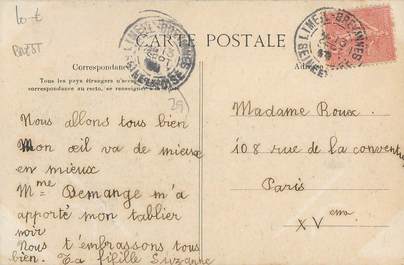 10-€
BREST
CARTE POSTALE
Correspondance
Tous les pays étrangers n'acceptent
correspondance au recto, se renseigner
LIMEIL-BREVANNES
SEINE-ET-OISE
LIMEIL-BREVANNES
29
Nous allons tous bien
Mon œil va de mieux
en mieux
Mme Demange m'a
apporté mon tablier
noir
Nous t'embrassons tous
bien. Ta fifille Suzanne
Madame Roux.
108 rue de la convention
Paris
XVeme